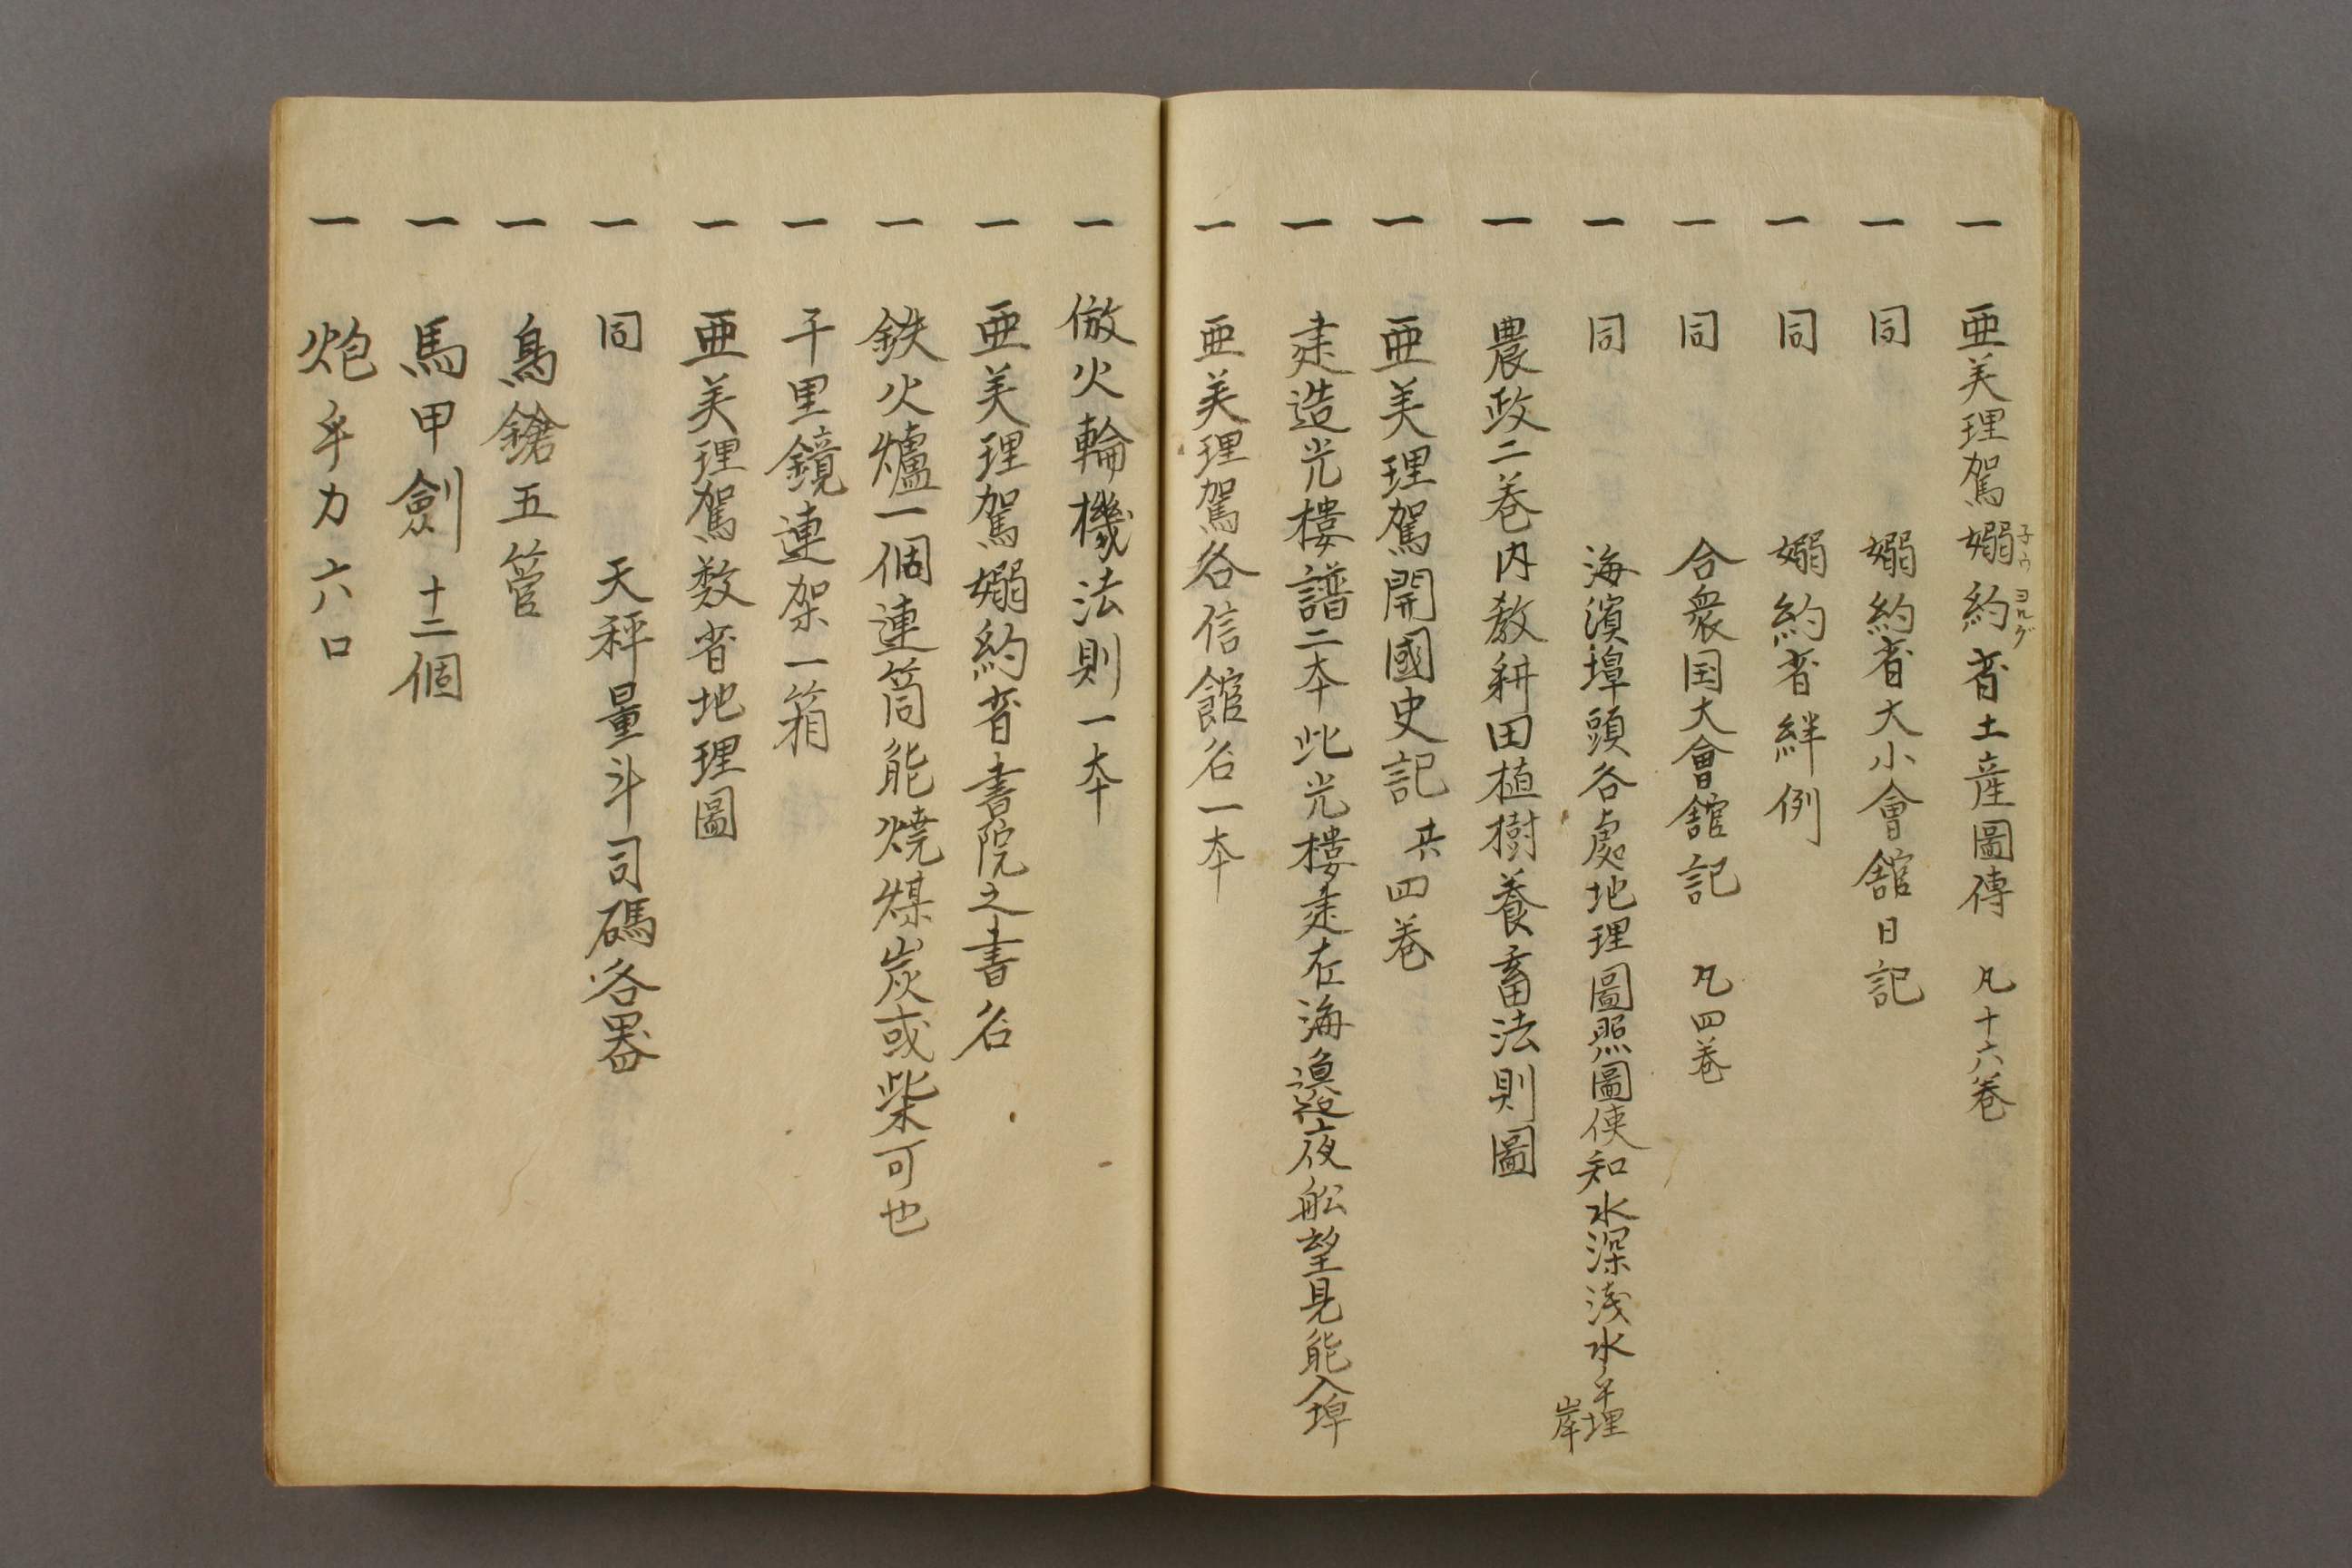 一 亜美理駕嫋約省土産圖傳 凡十六巻
子ウヨルグ
一 同 嫋約省大小會舘日記
一 同 嫋約省絆例
一 同 合衆国大會舘記 凡四巻
一 同 海濱埠頭各處地理圖照圖使知水深浅水手埋岸
一 農政二巻内教耕田植樹養畜法則圖
一 亜美理駕開國史記 共四巻
一 建造光樓譜二本此光樓建在海邉夜舩望見能入埠
一 亜美理駕各信館名一本
一 倣火輪機法則一本
一 亜美理駕嫋約省書院之書名
一 鉄火爐一個連筒能焼煤炭或柴可也
一 千里鏡連架一箱
一 亜美理駕数省地理圖
一 同 天秤量斗司碼各器
一 鳥鎗五管
一 馬甲劍十二個
一 炮手力六口